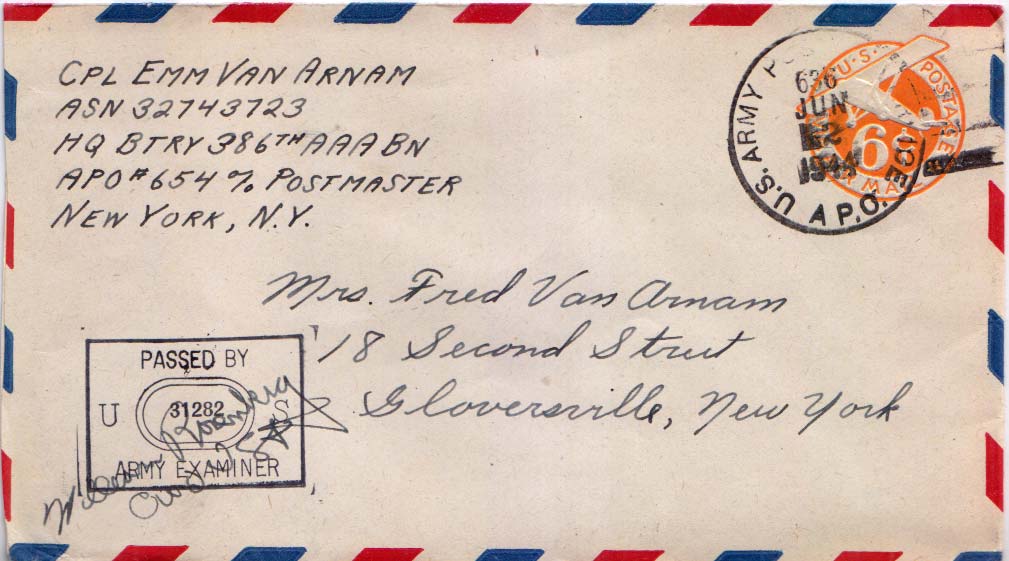 CPL EMM VAN ARNAM
ASN 32743723
HQ BTRY 386TH AAA BN
APO# 654 % POSTMASTER
NEW YORK, N.Y.
U.S. ARMY
A.P.O.
JUN
2
1944
U.S. POSTAGE
6¢
MAIL
Mrs. Fred Van Arnam
18 Second Street
Gloversville, New York
PASSED BY
U S
31282
ARMY EXAMINER
William Rosenberg